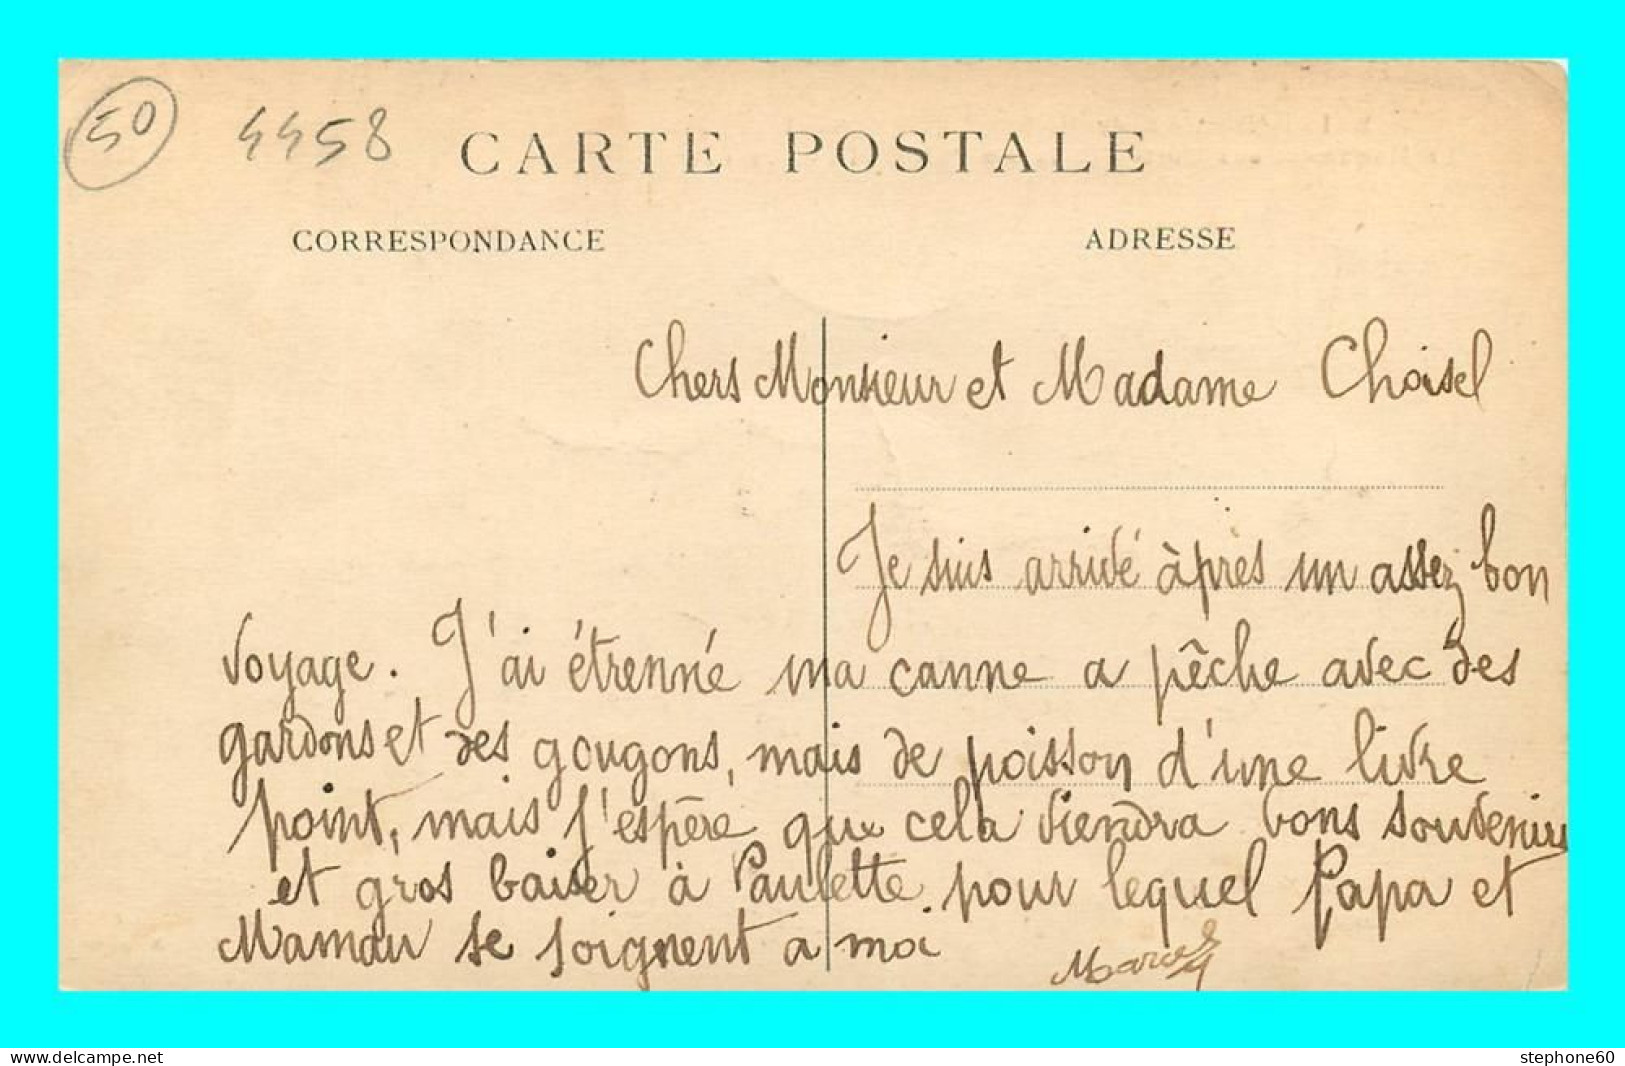 50 4458 CARTE POSTALE
CORRESPONDANCE ADRESSE
Chers Monsieur et Madame Choisel
Je suis arrivé àprès un assez bon
voyage. J'ai étrenné ma canne a pêche avec des
gardons et des gougons, mais de poisson d'une livre
point, mais j'espère que cela viendra bons souvenirs
et gros baiser à Paulette. pour lequel Papa et
Maman se joignent a moi
Marcel
www.delcampe.net stephone60